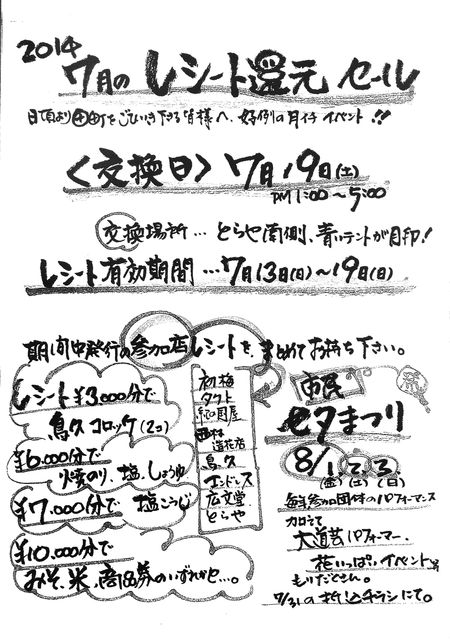 2014
7月の レシート還元 セール
日頃より中町をごひいき下さる皆様へ、好例の月イチ イベント!!
〈交換日〉 7月19日(土)
PM1:00〜5:00
交換場所…とらや南側、青いテントが目印!
レシート有効期間…7月13日(日)〜19日(日)
期間中発行の参加店レシートを、まとめてお持ち下さい。
レシート¥3,000分で
鳥久コロッケ(2コ)
¥6,000分で
焼のり、塩、しょうゆ
¥7,000分で 塩こうじ
¥10,000分で
みそ、米、商品券のいずれかと…。
初梅
タクト
紀国屋
西林
造花店
鳥久
エンドレス
広文堂
とらや
市民
七夕まつり
8/1、2、3、
(金)(土)(日)
毎年参加団体のパフォーマンス
加えて
大道芸パフォーマー、
花いっぱいイベント等
もりだくさん。
7/31の折込チラシにて。